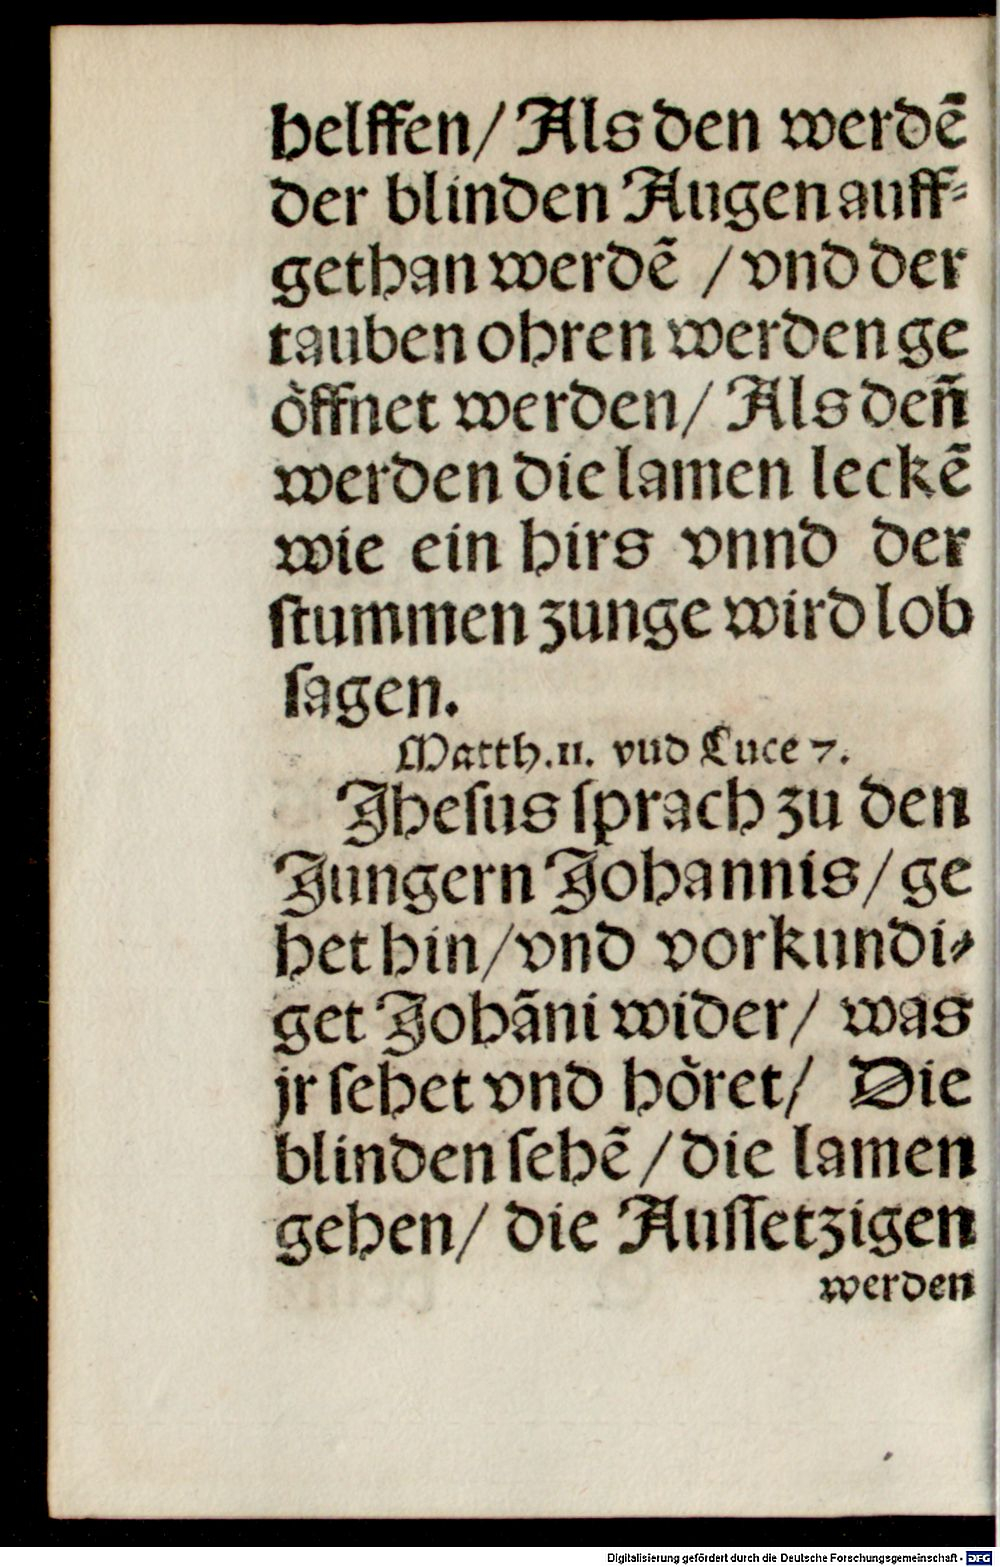 helffen/ Als den werdẽ
der blinden Augen auff⸗
gethan werdẽ /vnd der
tauben ohren werden ge
oͤffnet werden/ Als deñ
werden die lamen leckẽ
wie ein hirs vnnd der
ſtummen zunge wird lob
ſagen.
Matth.11. vnd Luce 7.
Jheſus ſprach zu den
Jungern Johannis/ge
het hin/vnd vorkundi⸗
get Johãni wider/ was
jr ſehet vnd hoͤret/ Die
blinden ſehẽ/die lamen
gehen/ die Auſſetzigen
werden
Digitalisierung gefördert durch die Deutsche Forschungsgemeinschaft - DFG